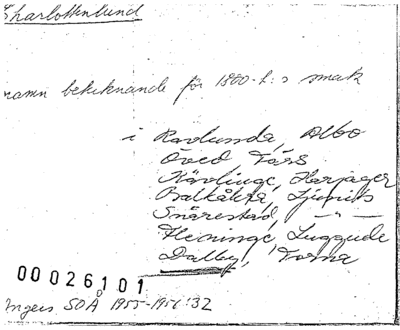 Charlottenlund
namn betecknande för 1800-t:s smak
i Ravlunda, Albo
Öved Färs
Kävlinge, Harjager
Balkåkra, Ljunits
Snårestad, -"-
Fleninge, Luggude
Dalby, Torna
00026101
Ingers SOÅ 1955-1956:32